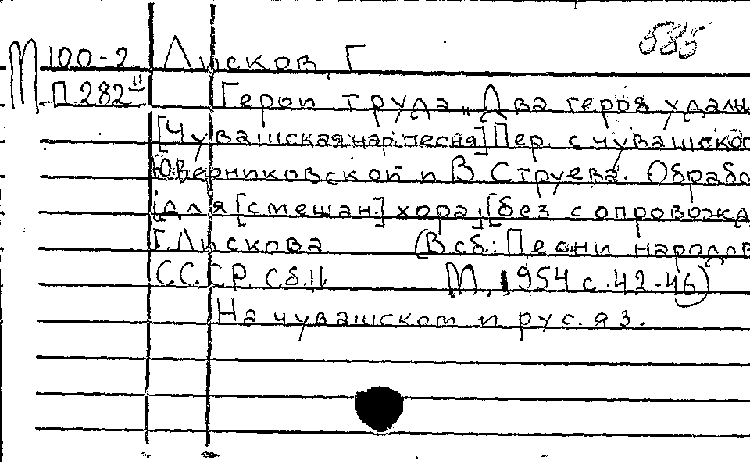 585
М 100-2 Лисков, Г
П 282 II Герои труда „Два героя удалы
[Чувашская нар. песня] Пер. с чувашског
Ю. Верниковской и В. Струева. Обрабо
для [смешан.] хора, [без сопровожд
Г. Лискова (В сб.: Песни народов
С.С.С.Р. Сб. II М., 1954 с. 42-46)
На чувашском и рус. яз.